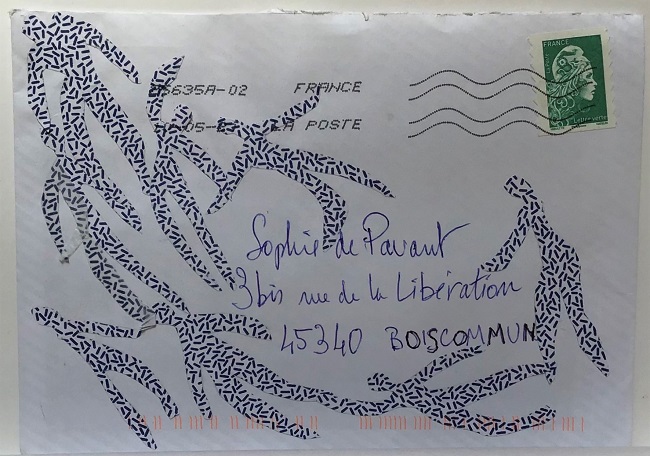 35635A-02 FRANCE
LA POSTE
FRANCE
Lettre verte
Sophie de Pavant
3 bis rue de la Libération
45340 BOISCOMMUN